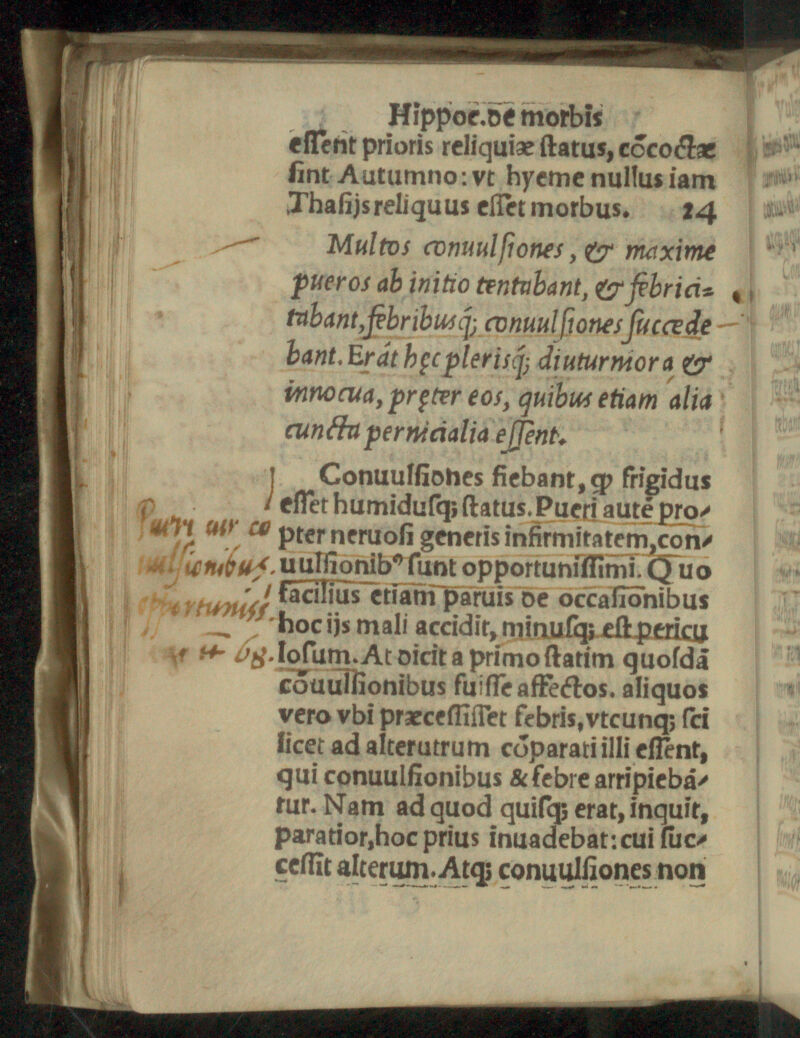 Hippoc.De morbis
eſſent prioris reliquiæ ſtatus, cōcoctæ
ſint Autumno: vt hyeme nullus iam
Thaſijs reliquus eſſet morbus. 24
Multos conuulſiones, & maxime
pueros ab initio tentabant, & febrici⸗
tabant, febribusq; conuulſiones ſuccede
bant. Erāt hęc plerisq; diuturniora &
innocua, pręter eos, quibus etiam alia
cuncta pernicialia eſſent.
Conuulſiones fiebant, ꝙ frigidus
eſſet humiduſq; ſtatus. Pueri autē pro⸗
pter neruoſi generis infirmitatem, con⸗
uulſionibꝰ ſunt opportuniſſimi. Quo
facilius etiam paruis de occaſionibus
hoc ijs mali accidit, minuſq; eſt pericu
loſum. At dicit a primo ſtatim quoſdā
cōuulſionibus fuiſſe affectos. aliquos
vero vbi præceſſiſſet febris, vtcunq; ſci
licet ad alterutrum cōparati illi eſſent,
qui conuulſionibus & febre arripiebā⸗
tur. Nam ad quod quiſq; erat, inquit,
paratior, hoc prius inuadebat: cui ſuc⸗
ceſſit alterum. Atq; conuulſiones non